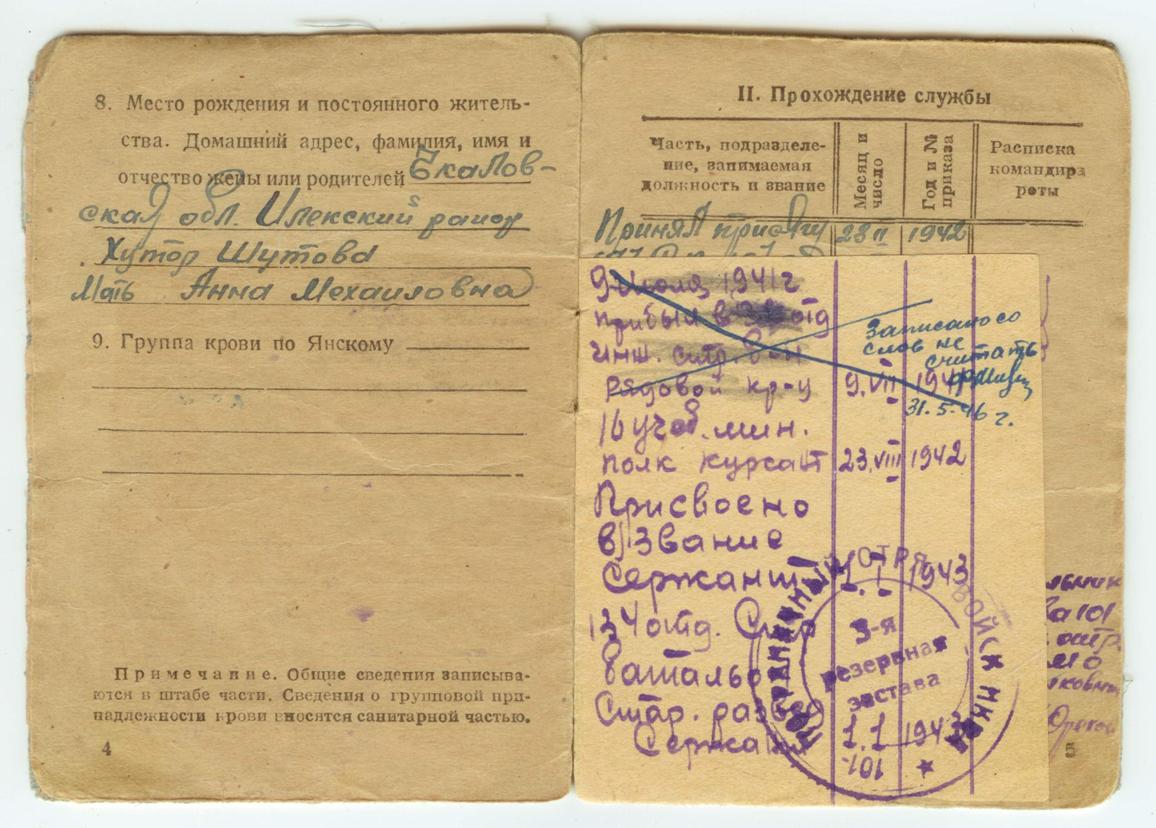 8. Место рождения и постоянного житель-
ства. Домашний адрес, фамилия, имя и
отчество жены или родителей Чкалов-
ская обл. Илекский район
Хутор Шутова
Мать Анна Механловна
9. Группа крови по Янскому
Примечание. Общие сведения записыва-
ются в штабе части. Сведения о групповой при-
надлежности крови вносятся санитарной частью.
4
II. Прохождение службы
Часть, подразделе-
ние, занимаемая
должность и звание
Месяц и
число
Год и №
приказа
Расписка
командира
роты
Принял присягу 28 II 1942
9 Июля 1941 г
прибыл в отд
инж. стр. б-н
рядовой кр-ц 9.VII 1941
Записаного
слов не
считать
31.5.46 г.
16 учеб. мин.
полк курсант 23.VIII 1942
Присвоено
в/звание
Сержант 1.I 1943
134 отд. Стр
батальон
Стар. развед
Сержант 1.1 1943
ПОГРАНИЧНЫЙ ОТРЯД ВОЙСК НКВД
3-я
резервная
застава
101
5